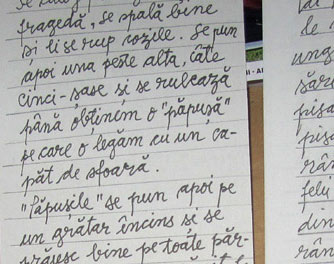 fragedă, se spală bine
și li se rup cozile. Se pun
apoi una peste alta, câte
cinci-șase și se rulează
până obținem o "păpușă"
pe care o legăm cu un ca-
păt de sfoară.
"Păpușile" se pun apoi pe
un grătar încins și se
prăjesc bine pe toate păr-
le
ung
sără
pisa
pișc
rân
felu
din
rân